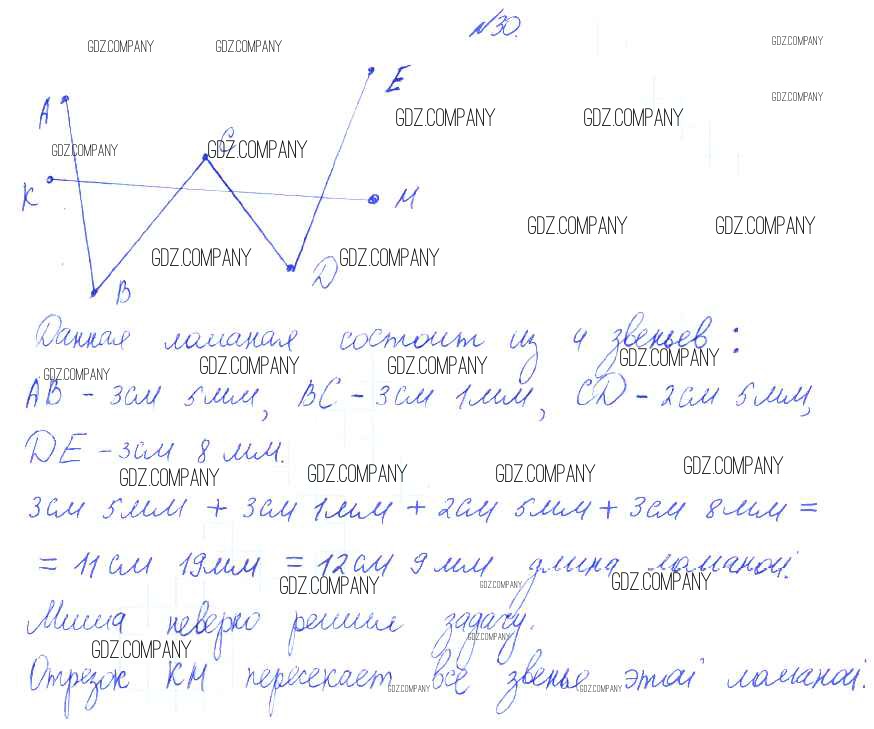 №30.
GDZ.COMPANY GDZ.COMPANY GDZ.COMPANY
E
A GDZ.COMPANY
GDZ.COMPANY GDZ.COMPANY
GDZ.COMPANY C GDZ.COMPANY
K M
GDZ.COMPANY GDZ.COMPANY
GDZ.COMPANY GDZ.COMPANY
B D
Данная ломаная состоит из 4 звеньев:
GDZ.COMPANY GDZ.COMPANY GDZ.COMPANY GDZ.COMPANY
AB - 3см 5мм, BC - 3см 1мм, CD - 2см 5мм,
DE - 3см 8 мм.
GDZ.COMPANY GDZ.COMPANY GDZ.COMPANY GDZ.COMPANY
3см 5мм + 3см 1мм + 2см 5мм + 3см 8мм =
= 11см 19мм = 12см 9мм длина ломаной.
GDZ.COMPANY GDZ.COMPANY GDZ.COMPANY
Миша неверно решил задачу.
GDZ.COMPANY GDZ.COMPANY
Отрезок КМ пересекает все звенье этой ломаной.
GDZ.COMPANY GDZ.COMPANY